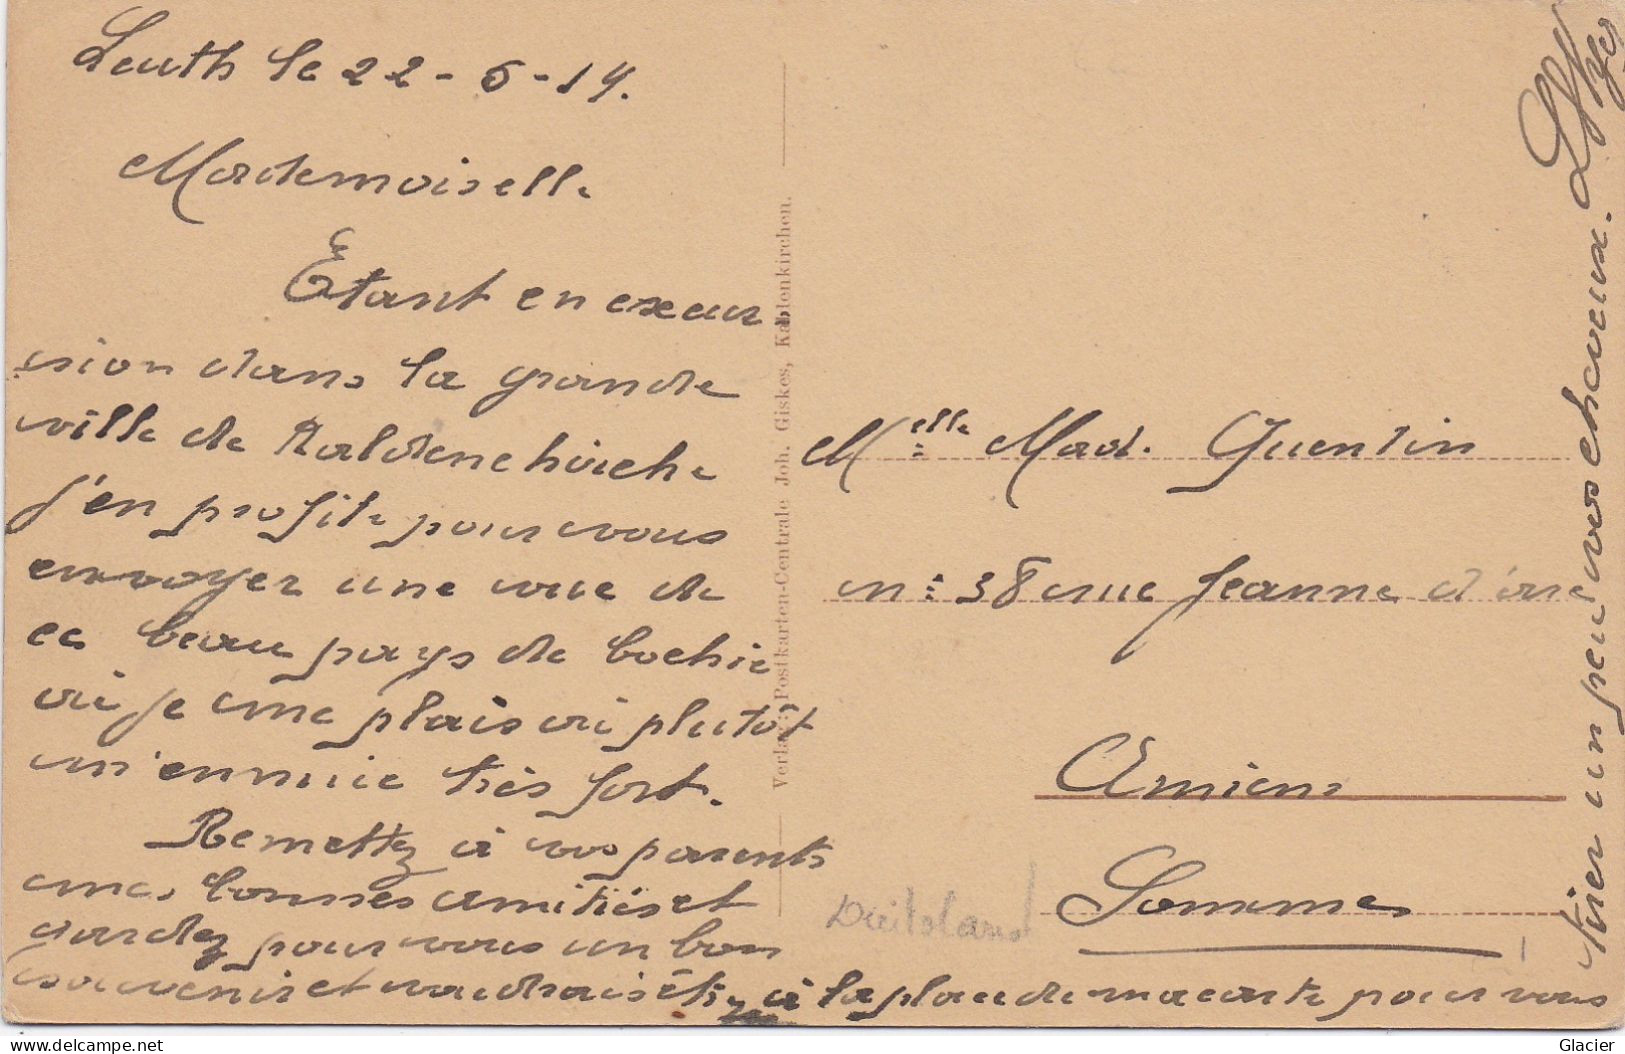 Leuth le 22-5-19.
Mademoiselle
Etant en excur
sion dans la grande
ville de Kaldenchirche
j'en profite pour vous
envoyer une vue de
ce beau pays de bochie
où je me plais où plutôt
m'ennuie très fort.
Remettez à vos parents
mes bonnes amitiés et
gardez pour vous un bon
souvenir et voudrais être à la place de ma carte pour vous
tirer un peu vos cheveux.
Verlag: Postkarten-Centrale Joh. Giskes, Kaldenkirchen.
Melle Mad. Quentin
n: 38 rue Jeanne d'arc
Amiens
Somme
Duitsland
delcampe.net
Glacier